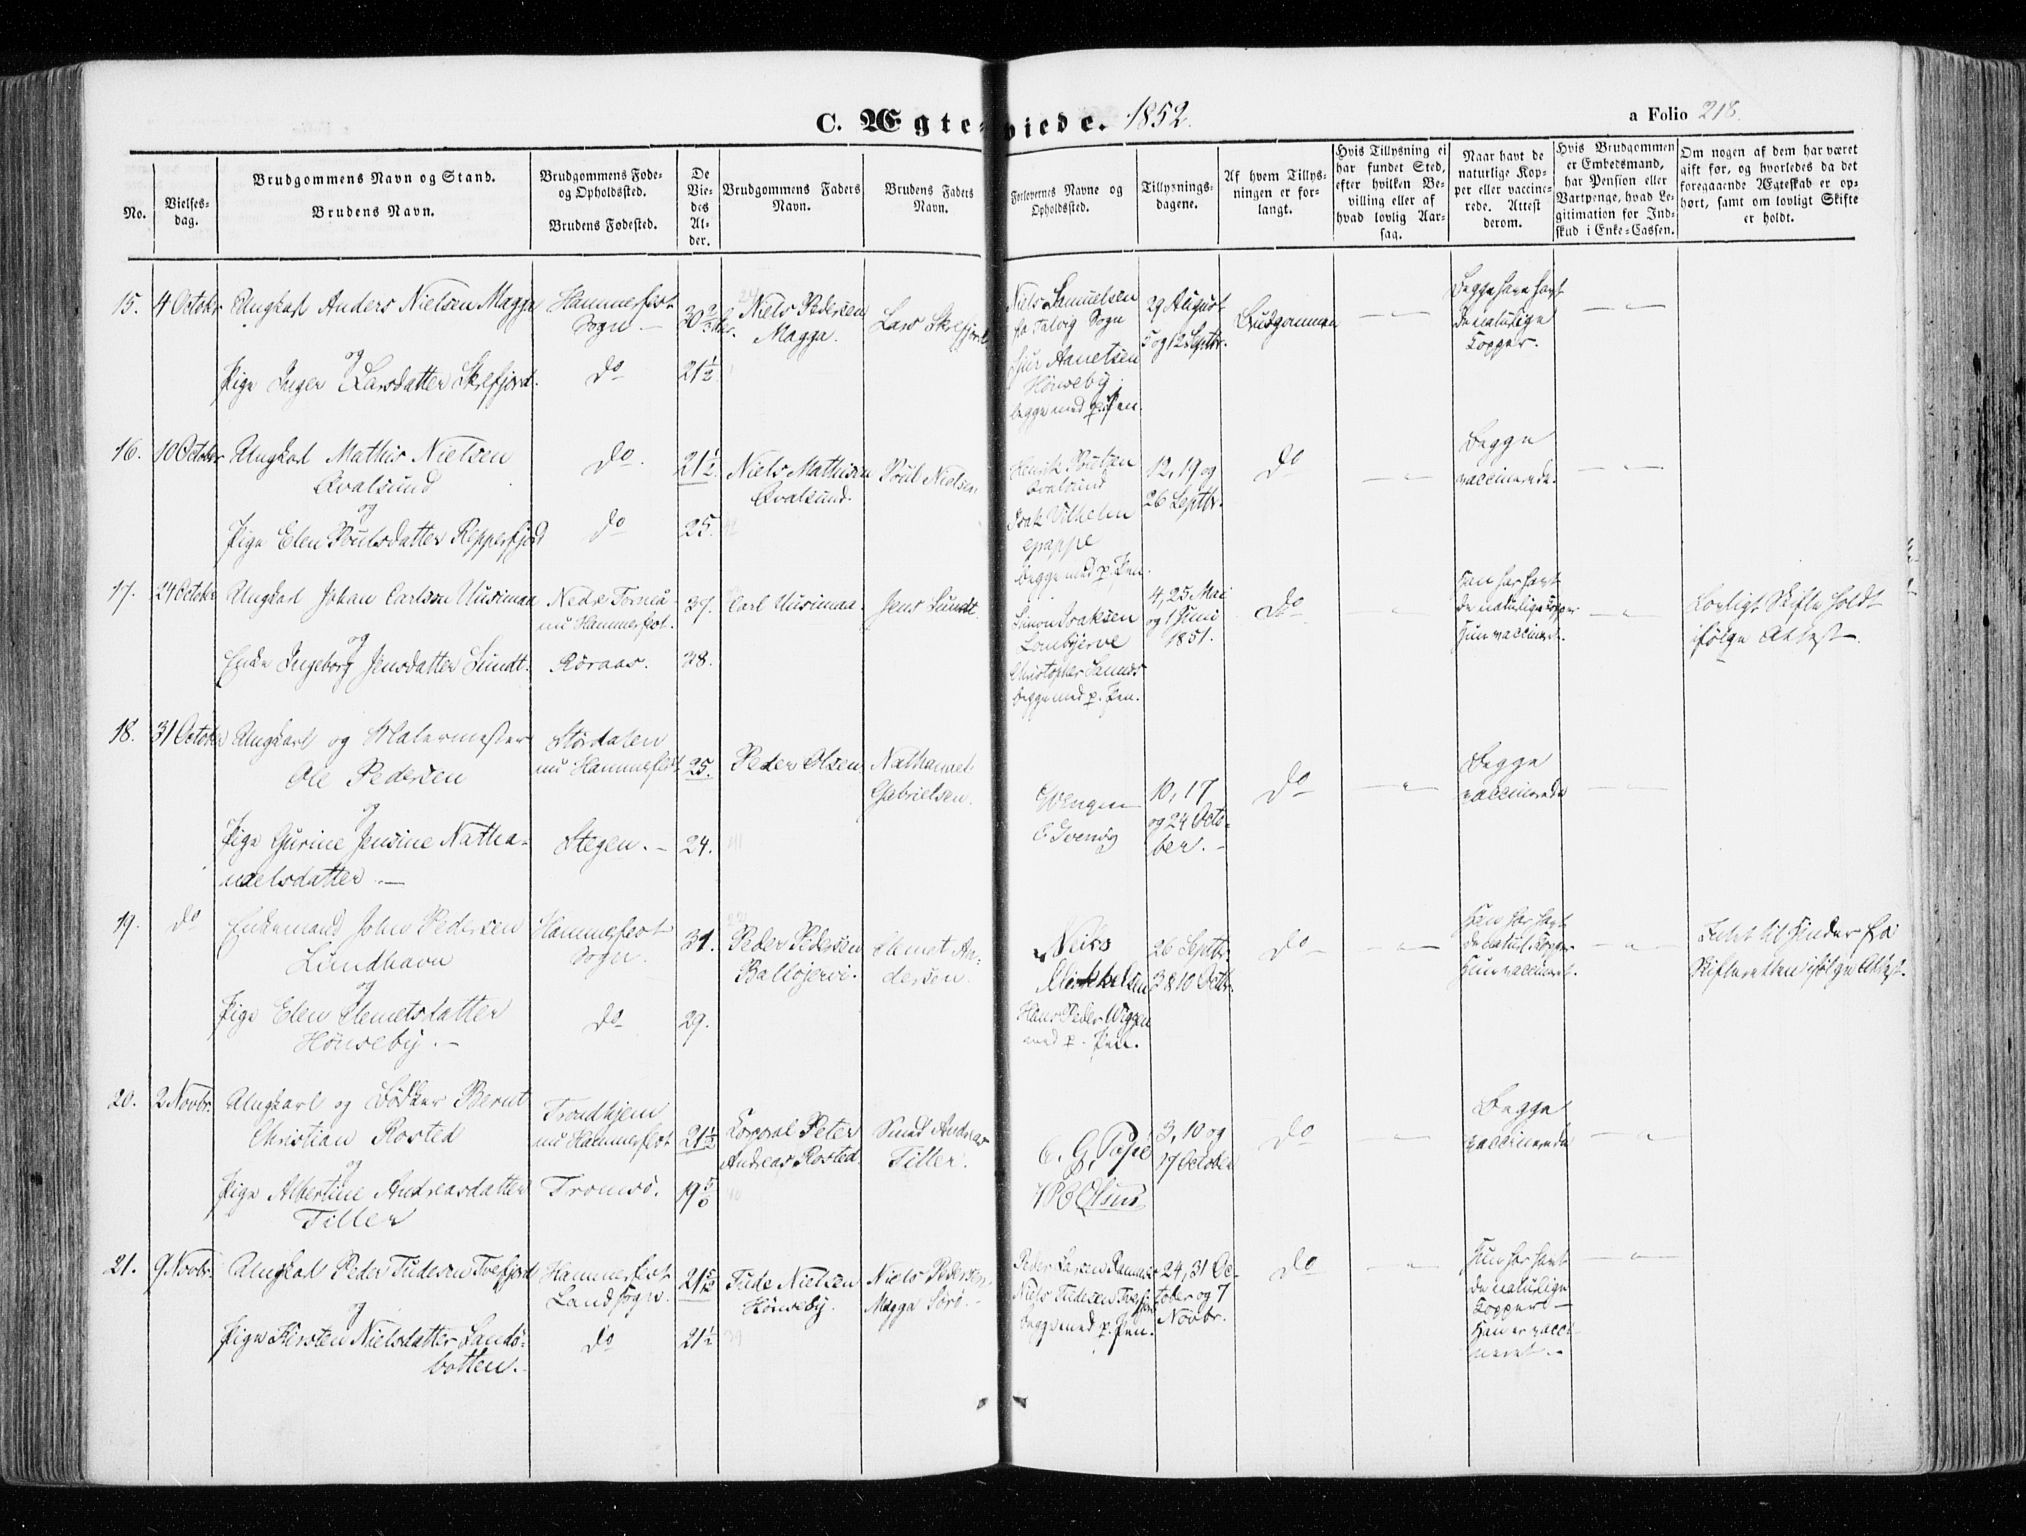 C. Ægteviede. 1852.
a Folio 218.
No.
Vielses-
dag.
Brudgommens Navn og Stand.
Brudens Navn.
Brudgommens Føde-
og Opholdssted.
Brudens Fødested.
De
Vie-
des
Al-
der.
Brudgommens Faders
Navn.
Brudens Faders
Navn.
Forlovernes Navne og
Opholdssted.
Tillysnings-
dagene.
Af hvem Tillys-
ningen er for-
langt.
Hvis Tillysning ei
har fundet Sted,
efter hvilken Be-
villing eller af
hvad lovlig Aar-
sag.
Naar havt de
naturlige Kop-
per eller vaccine-
rede. Attest
derom.
Hvis Brudgommen
er Embedsmand,
har Pension eller
Vartpenge, hvad Le-
gitimation for Ind-
skud i Enke-Cassen.
Om nogen af dem har været
gift før, og hvorledes da det
foregaaende Ægteskab er op-
hørt, samt om lovligt Skifte
er holdt.
15. 4 October
Ungkarl Anders Nielsen Magga
og
Pige Inger Larsdatter Skrefjord.
Hammerfest
Sogn
do
21 1/2
Niels Pedersen
Magga.
Lars Skrefjord
Niels Samuelsen
fra Talvig Sogn
Aanetsen
Hønseby
begge med p. Pen.
29 August
5 og 12 Septbr.
Brudgommen
Begge have havt
de naturlige
Kopper.
16. 10 October
Ungkarl Mathis Nielsen
Qvalsund
og
Pige Elen Poulsdatter Repperfjord
do.
do
21 1/2
25.
Niels Mathisen
Qvalsund.
Poul Nielsen
Henrik Poulsen
Qvalsund
Isak Vilhelm
begge med p. Pen.
12, 19 og
26 Septbr.
do
Begge
vaccinerede.
17. 24 October
Ungkarl Johan Carlsen Uusimaa
og
Enke Ingeborg Jensdatter Lundt.
Nedre Torneå
nu Hammerfest.
Røraas.
37.
38.
Carl Uusimaa
Jens Lundt
Simon Isaksen
Christopher
begge med p. Pen.
4, 25 Mai
og 1 Juni
1851.
do
Han har havt
de naturlige Kopper
Hun vaccineret.
Lovligt Skifte holdt
ifølge Attest
18. 31 October
Ungkarl og Malermester
Ole Pedersen
og
Pige Gurine Jensine Natha-
naelsdatter
Stördalen
nu Hammerfest
Stegen.
25.
24.
Peder Olsen
Nathanael
Gabrielsen.
10, 17
og 24 Octo-
ber.
do
Begge
vaccinerede
19. do
Enkemand John Pedersen
Lundhavn
og
Pige Elen Clemetsdatter
Hönseby.
Hammerfest
Sogn.
do
31.
29.
Peder Pedersen
Ballojervi.
Clemet An-
dersen.
Neiks
Mikkelsen
Hans Peder Wiggen
med p. Pen.
26 Septbr.
3 & 10 Octbr.
do
Han har havt
de naturl. Kopper
Hun vaccineret.
Intet til Hinder fra
Skifteretten ifølge Attest.
20. 2 Novbr.
Ungkarl og Bødker Bernt
Christian Rosted
og
Pige Albertine Andreasdatter
Tiller
Trondhjem
nu Hammerfest
Tromsö.
21 1/2
Corporal Peter
Andreas Rosted.
Smed Andreas
Tiller.
C. G. Pape
Olsen
3, 10 og
17 October
do
Begge
vaccinerede
21. 9. Novbr.
Ungkarl Peder Tudesen Tvefjord
og
Pige Kirsten Nielsdatter Sandö-
botten.
Hammerfest
Landsogn.
do
21 1/2
Tude Nielsen
Hönseby.
Niels Pedersen
Magga Sörö.
Peder Larsen
Niels Tudesen Tvefjord
begge med p. Pen.
24, 31 Oc-
tober og 7
Novbr.
do
Hun har havt
de naturlige
Kopper
Han er vacci-
neret.